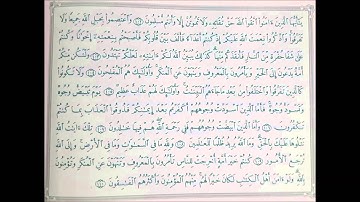 يَٰٓأَيُّهَا ٱلَّذِينَ ءَامَنُوا۟ ٱتَّقُوا۟ ٱللَّهَ حَقَّ تُقَاتِهِۦ وَلَا تَمُوتُنَّ إِلَّا وَأَنتُم مُّسْلِمُونَ وَٱعْتَصِمُوا۟ بِحَبْلِ ٱللَّهِ جَمِيعًا وَلَا
تَفَرَّقُوا۟ وَٱذْكُرُوا۟ نِعْمَتَ ٱللَّهِ عَلَيْكُمْ إِذْ كُنتُمْ أَعْدَآءً فَأَلَّفَ بَيْنَ قُلُوبِكُمْ فَأَصْبَحْتُم بِنِعْمَتِهِۦٓ إِخْوَٰنًا وَكُنتُمْ
عَلَىٰ شَفَا حُفْرَةٍ مِّنَ ٱلنَّارِ فَأَنقَذَكُم مِّنْهَا كَذَٰلِكَ يُبَيِّنُ ٱللَّهُ لَكُمْ ءَايَٰتِهِۦ لَعَلَّكُمْ تَهْتَدُونَ وَلْتَكُن مِّنكُمْ
أُمَّةٌ يَدْعُونَ إِلَى ٱلْخَيْرِ وَيَأْمُرُونَ بِٱلْمَعْرُوفِ وَيَنْهَوْنَ عَنِ ٱلْمُنكَرِ وَأُو۟لَٰٓئِكَ هُمُ ٱلْمُفْلِحُونَ وَلَا تَكُونُوا۟
كَٱلَّذِينَ تَفَرَّقُوا۟ وَٱخْتَلَفُوا۟ مِنۢ بَعْدِ مَا جَآءَهُمُ ٱلْبَيِّنَٰتُ وَأُو۟لَٰٓئِكَ لَهُمْ عَذَابٌ عَظِيمٌ يَوْمَ تَبْيَضُّ وُجُوهٌ
وَتَسْوَدُّ وُجُوهٌ فَأَمَّا ٱلَّذِينَ ٱسْوَدَّتْ وُجُوهُهُمْ أَكَفَرْتُم بَعْدَ إِيمَٰنِكُمْ فَذُوقُوا۟ ٱلْعَذَابَ بِمَا كُنتُمْ
تَكْفُرُونَ وَأَمَّا ٱلَّذِينَ ٱبْيَضَّتْ وُجُوهُهُمْ فَفِى رَحْمَةِ ٱللَّهِ هُمْ فِيهَا خَٰلِدُونَ تِلْكَ ءَايَٰتُ
ٱللَّهِ نَتْلُوهَا عَلَيْكَ بِٱلْحَقِّ وَمَا ٱللَّهُ يُرِيدُ ظُلْمًا لِّلْعَٰلَمِينَ وَلِلَّهِ مَا فِى ٱلسَّمَٰوَٰتِ وَمَا فِى ٱلْأَرْضِ وَإِلَى ٱللَّهِ
تُرْجَعُ ٱلْأُمُورُ كُنتُمْ خَيْرَ أُمَّةٍ أُخْرِجَتْ لِلنَّاسِ تَأْمُرُونَ بِٱلْمَعْرُوفِ وَتَنْهَوْنَ عَنِ ٱلْمُنكَرِ وَتُؤْمِنُونَ
بِٱللَّهِ وَلَوْ ءَامَنَ أَهْلُ ٱلْكِتَٰبِ لَكَانَ خَيْرًا لَّهُم مِّنْهُمُ ٱلْمُؤْمِنُونَ وَأَكْثَرُهُمُ ٱلْفَٰسِقُونَ